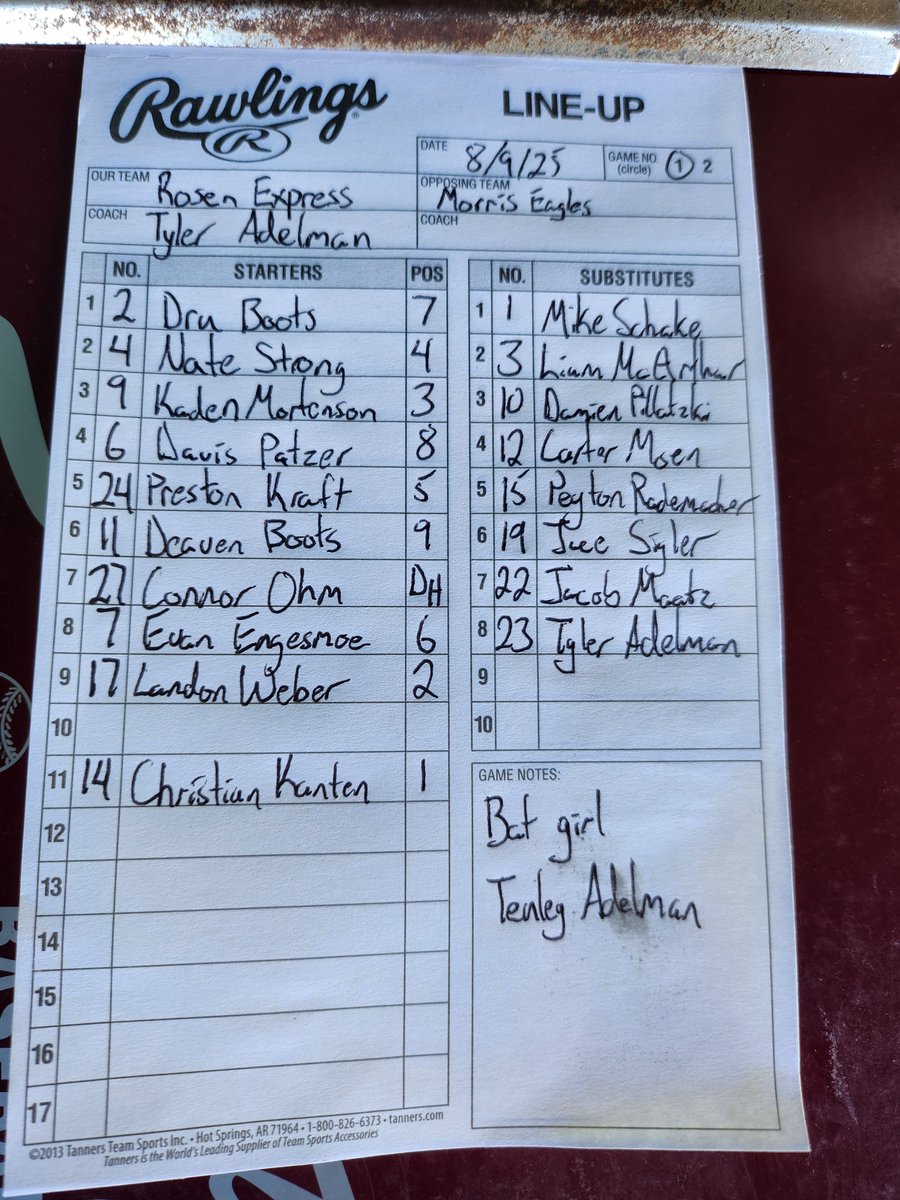 Rawlings
R
LINE-UP
DATE 8/9/25 GAME NO. (circle) 1 2
OUR TEAM Rosen Express
OPPOSING TEAM Morris Eagles
COACH Tyler Adelman
COACH
NO. STARTERS POS
1 2 Dru Boots 7
2 4 Nate Strong 4
3 9 Kaden Mortenson 3
4 6 Davis Patzer 8
5 24 Preston Kraft 5
6 11 Deaven Boots 9
7 27 Connor Ohm DH
8 7 Evan Engesmoe 6
9 17 Landon Weber 2
10
11 14 Christian Kanten 1
12
13
14
15
16
17
NO. SUBSTITUTES
1 1 Mike Schake
2 3 Liam McArthur
3 10 Damien Pillatzki
4 12 Carter Mosen
5 15 Peyton Rademacher
6 19 Sigler
7 22 Jacob Maatz
8 23 Tyler Adelman
9
10
GAME NOTES:
Bat girl
Tenley Adelman
©2013 Tanners Team Sports Inc. • Hot Springs, AR 71964 • 1-800-826-6373 • tanners.com
Tanners is the World's Leading Supplier of Team Sports Accessories